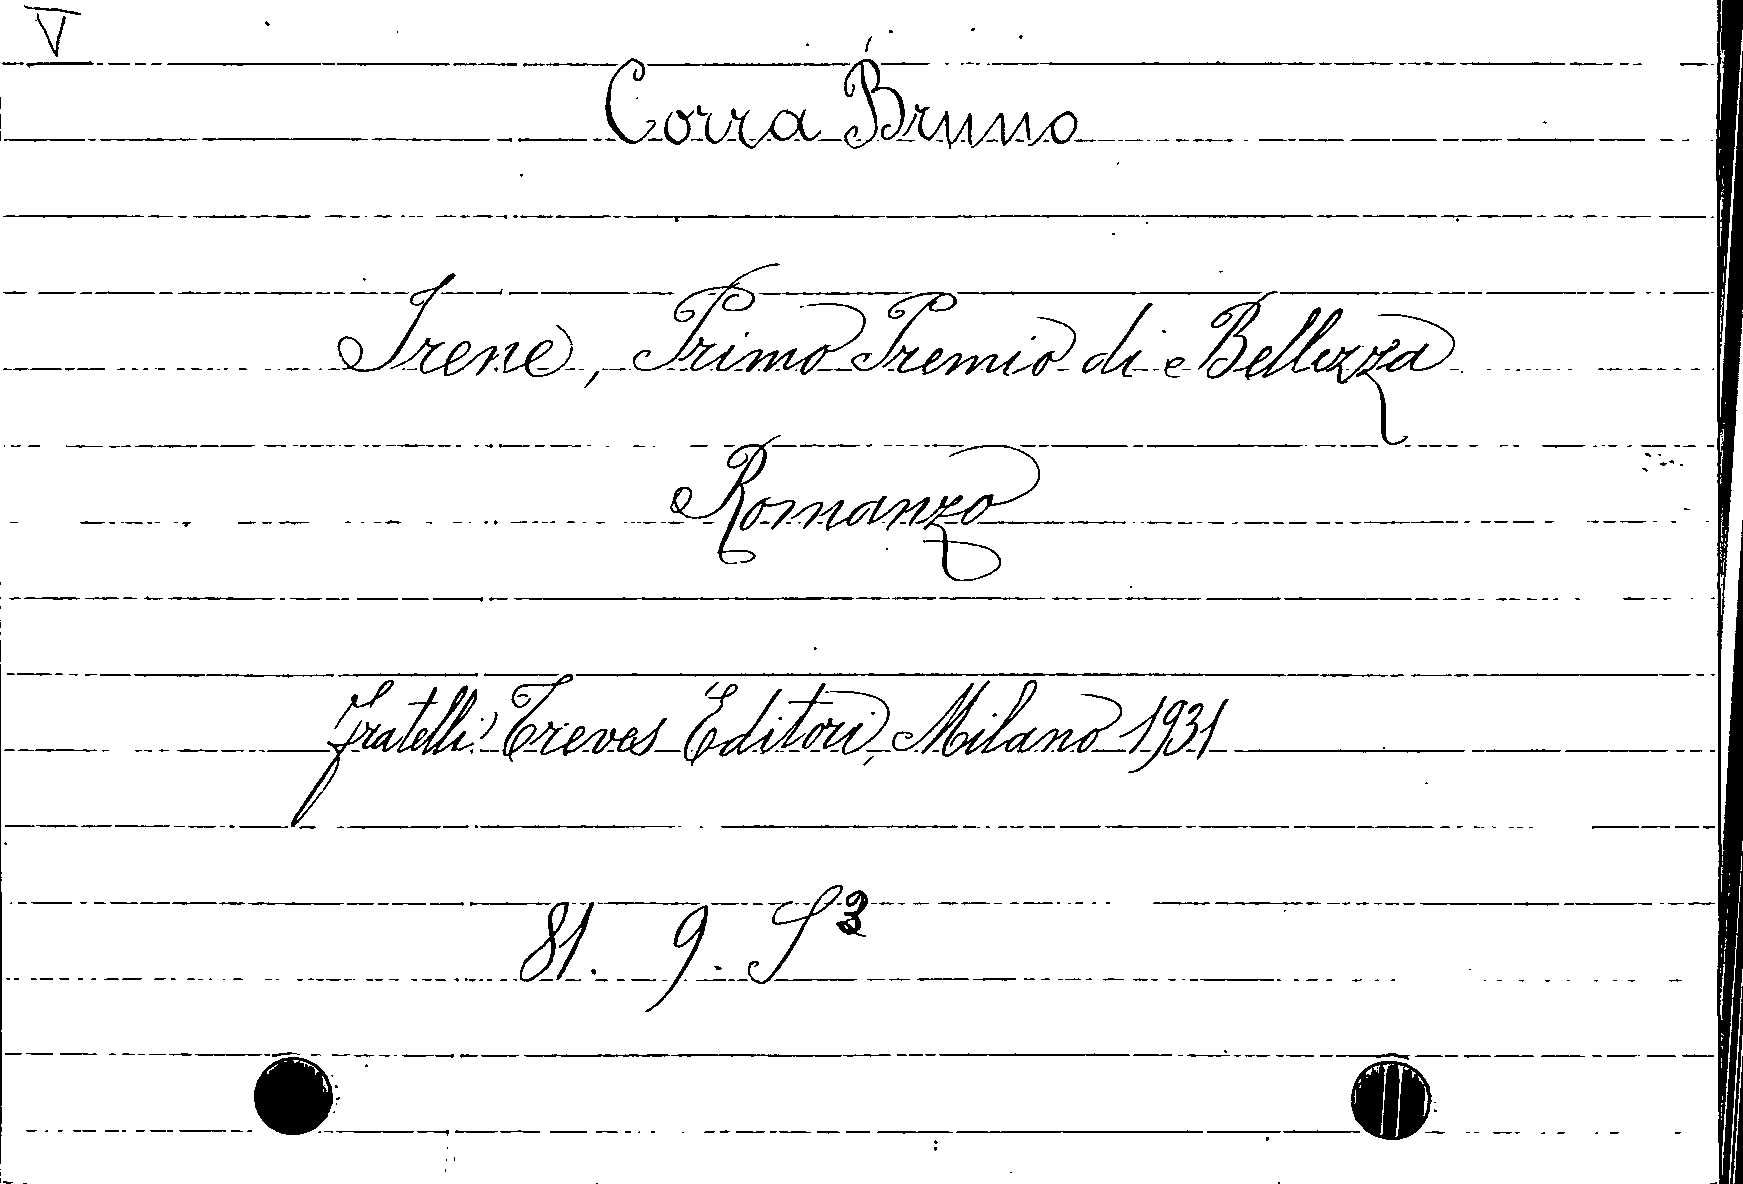 V
Corra Bruno
Irene, Primo Premio di Bellezza
Romanzo
Fratelli Treves Editori, Milano 1931
81. 9. S³